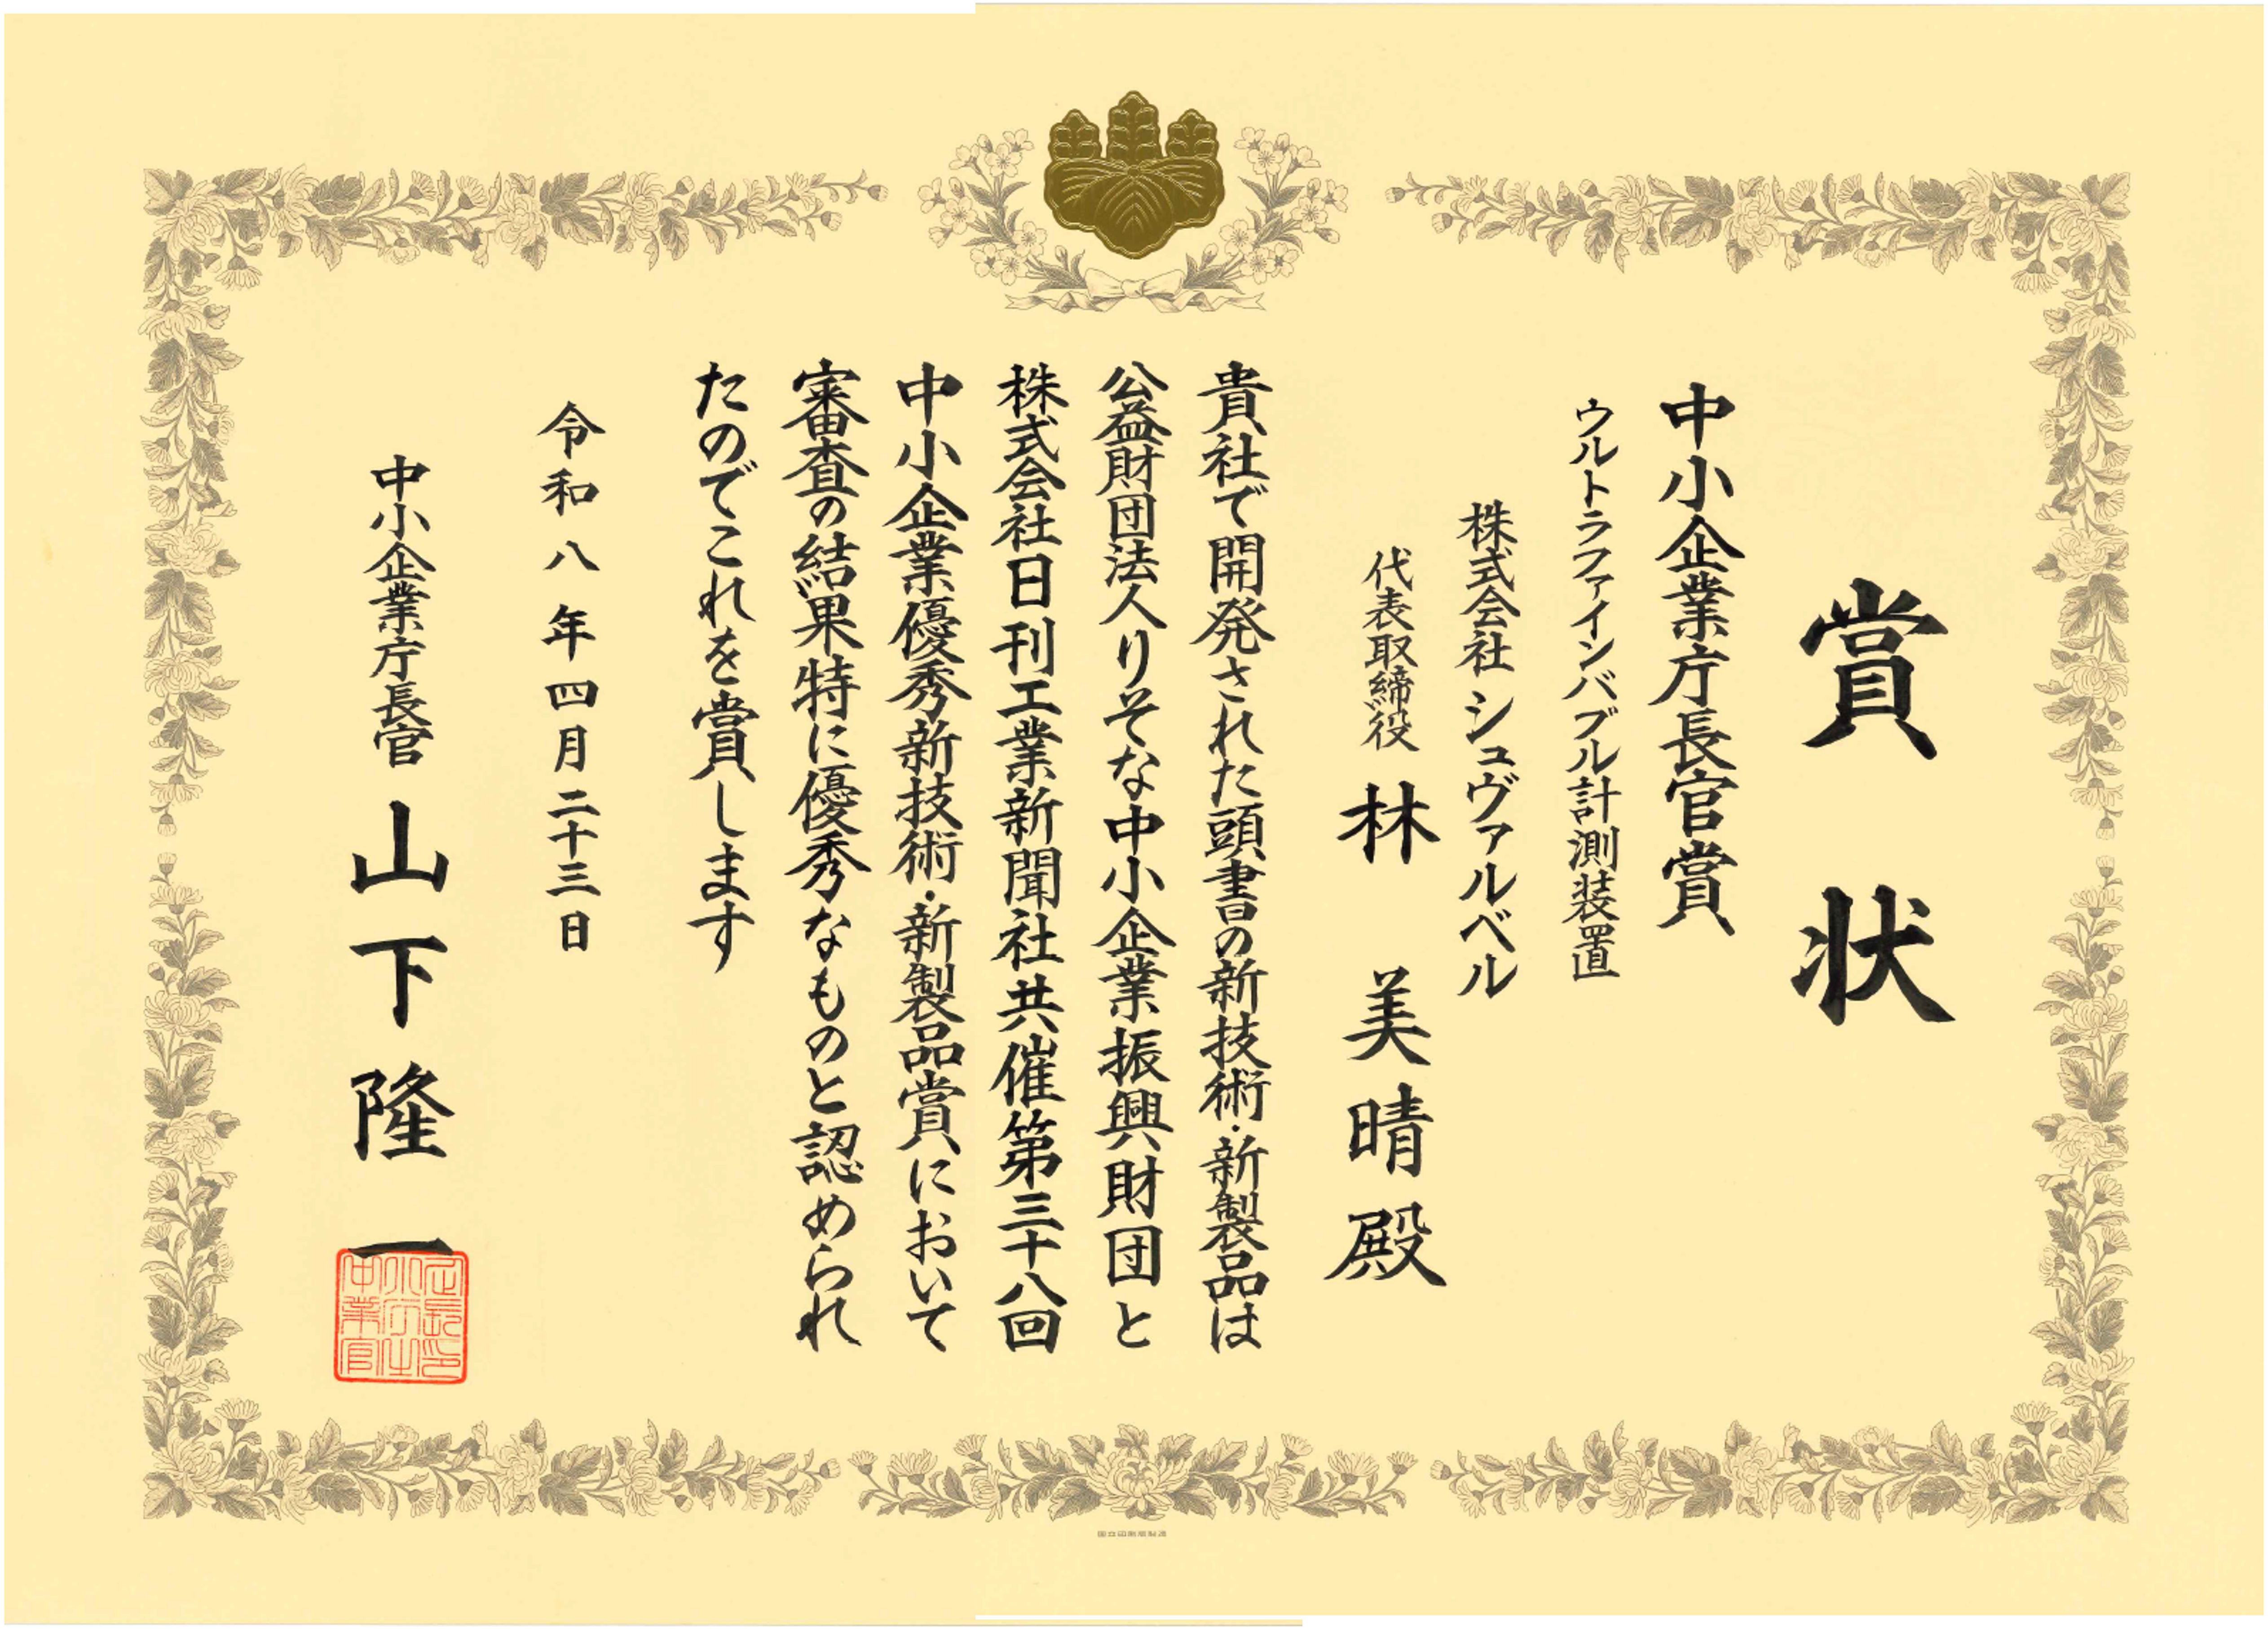 賞状
中小企業庁長官賞
ウルトラファインバブル計測装置
株式会社シュヴァルベル
代表取締役 林 美晴殿
貴社で開発された頭書の新技術・新製品は
公益財団法人りそな中小企業振興財団と
株式会社日刊工業新聞社共催第三十八回
中小企業優秀新技術・新製品賞において
審査の結果特に優秀なものと認められ
たのでこれを賞します
令和八年四月二十三日
中小企業庁長官 山下隆一